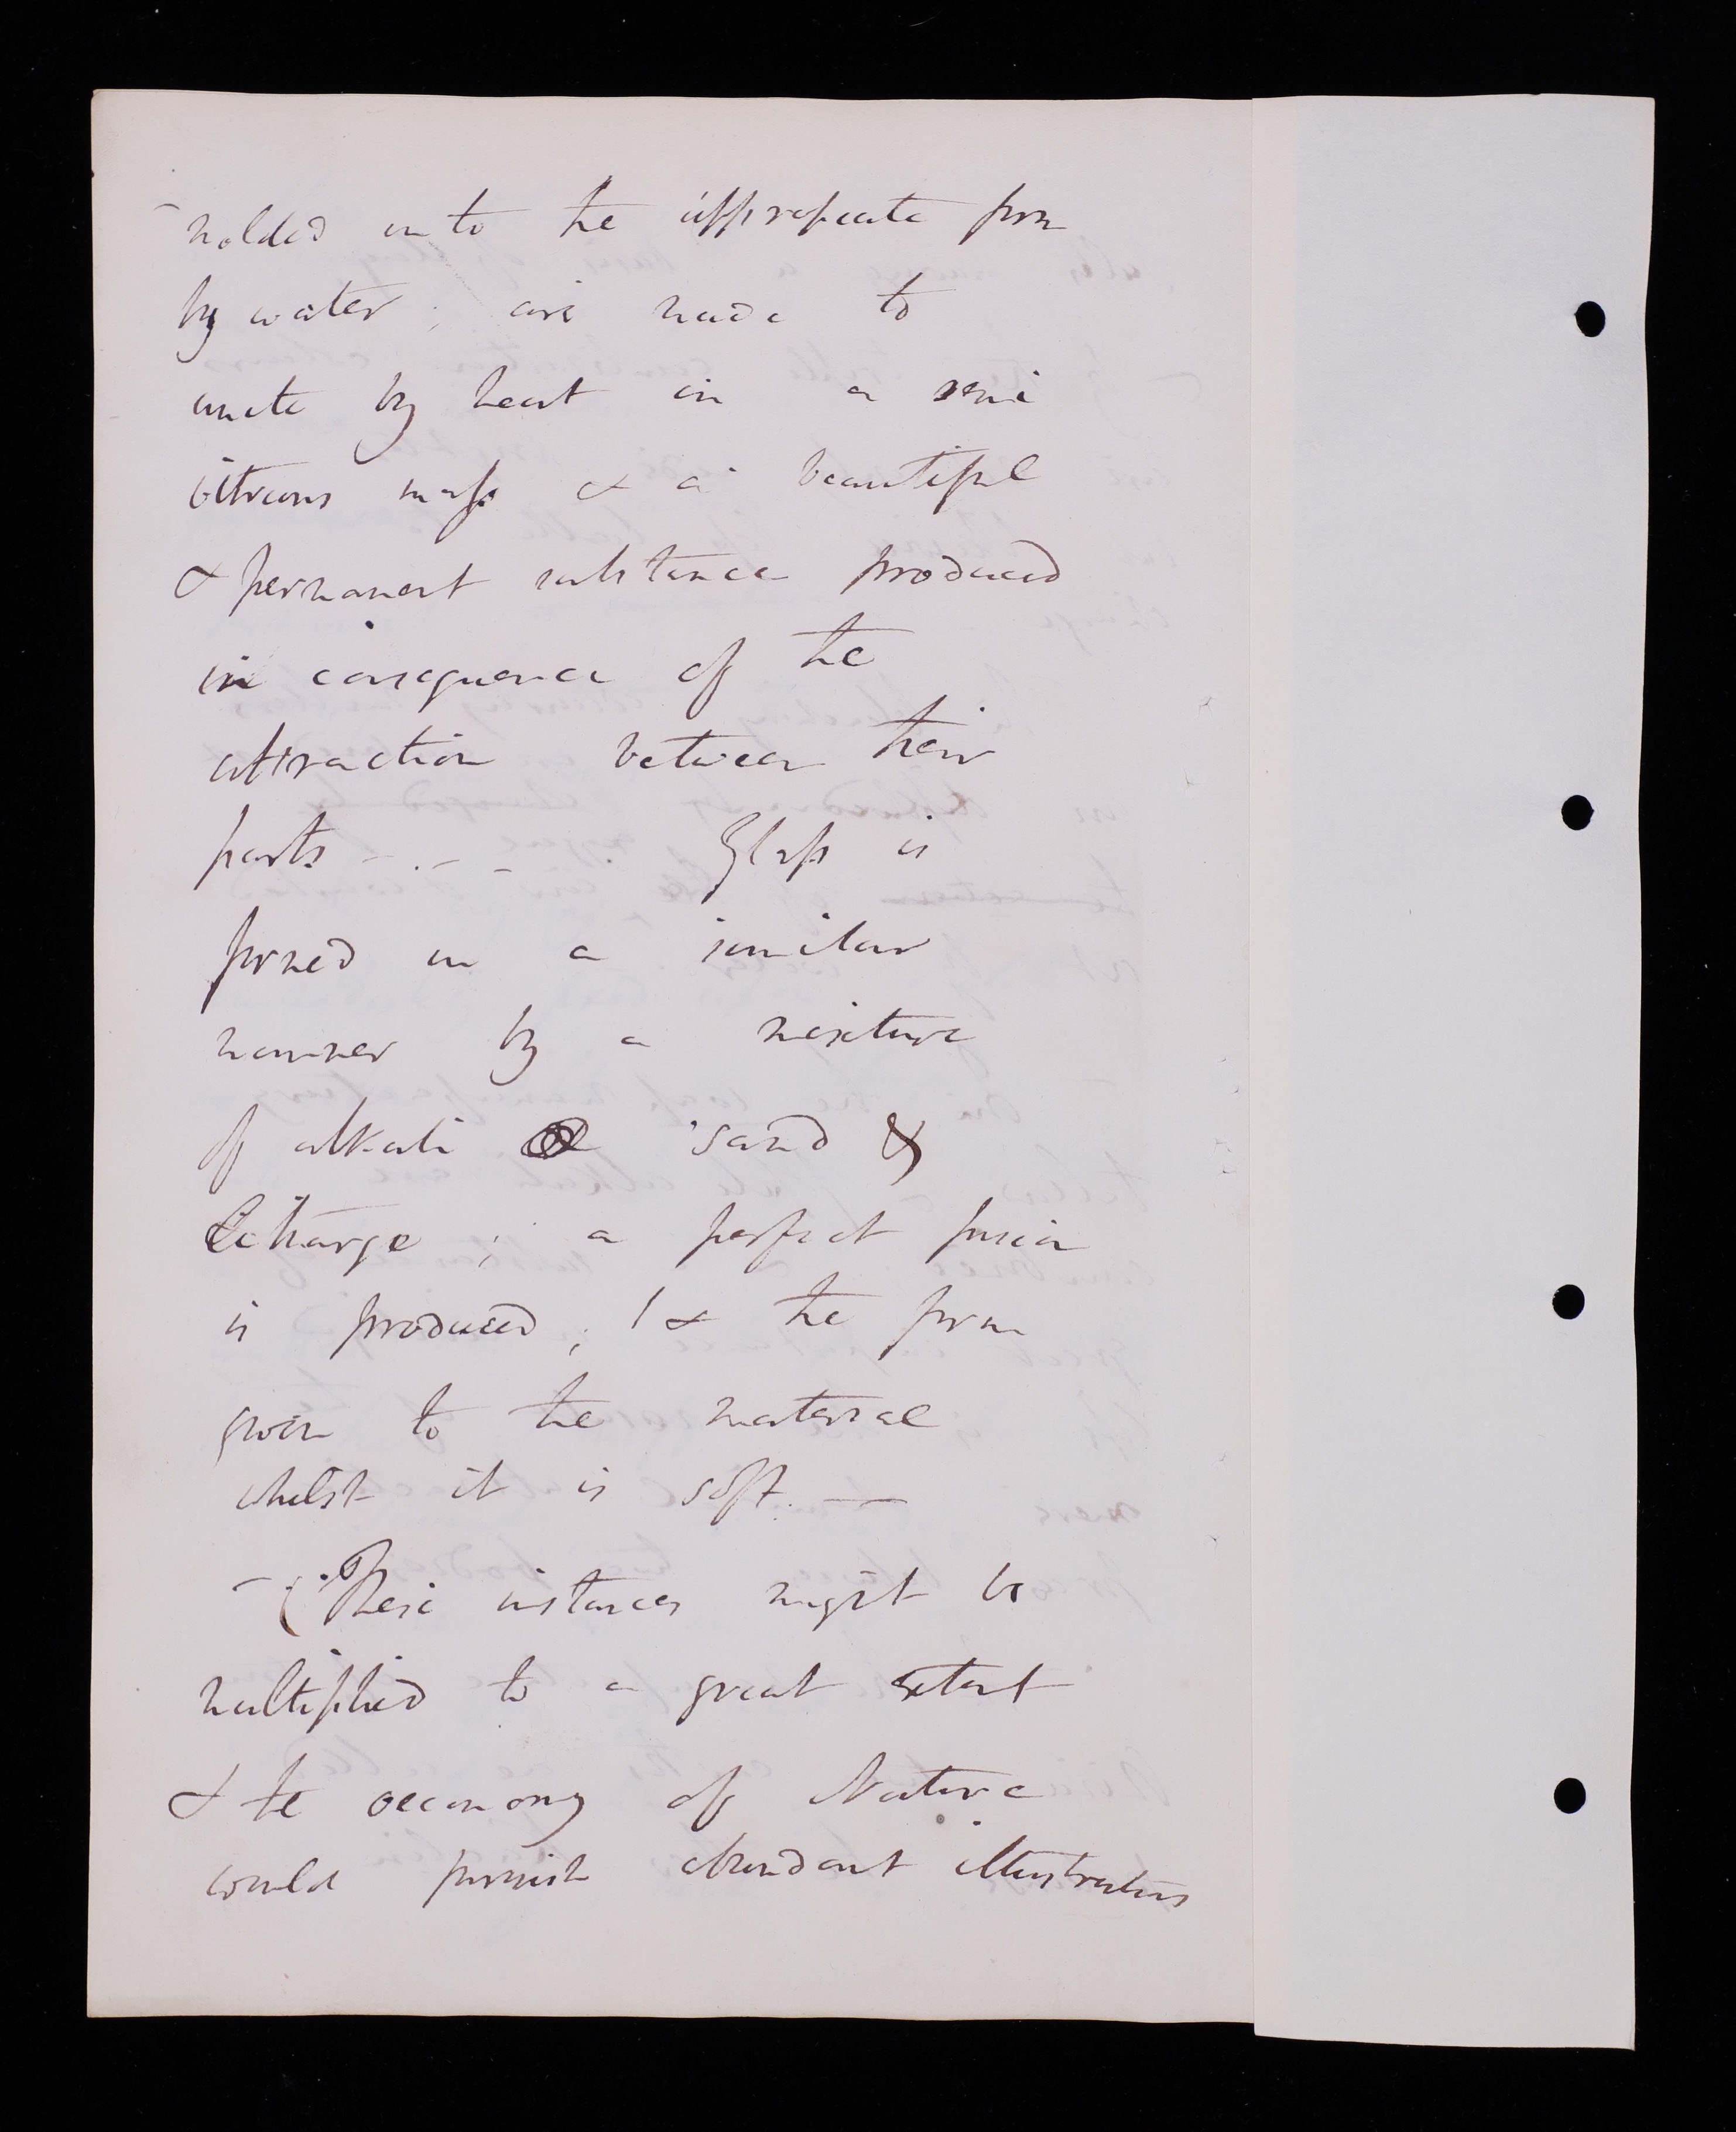 - molded into the appropriate form
by water; are made to
unite by heat in a semi
vitreous mass & a beautiful
& permanent substance produced
in consequence of the
attraction between their
parts - . - - . Glass is
formed in a similar
manner by a mixture
of alkali sand &
Litharge; a perfect fusion
is produced; / & the form
given to the material
whilst it is soft. —
- (These instances might be
multiplied to a great extent
& the oeconomy of Nature
would furnish abundant illustrations